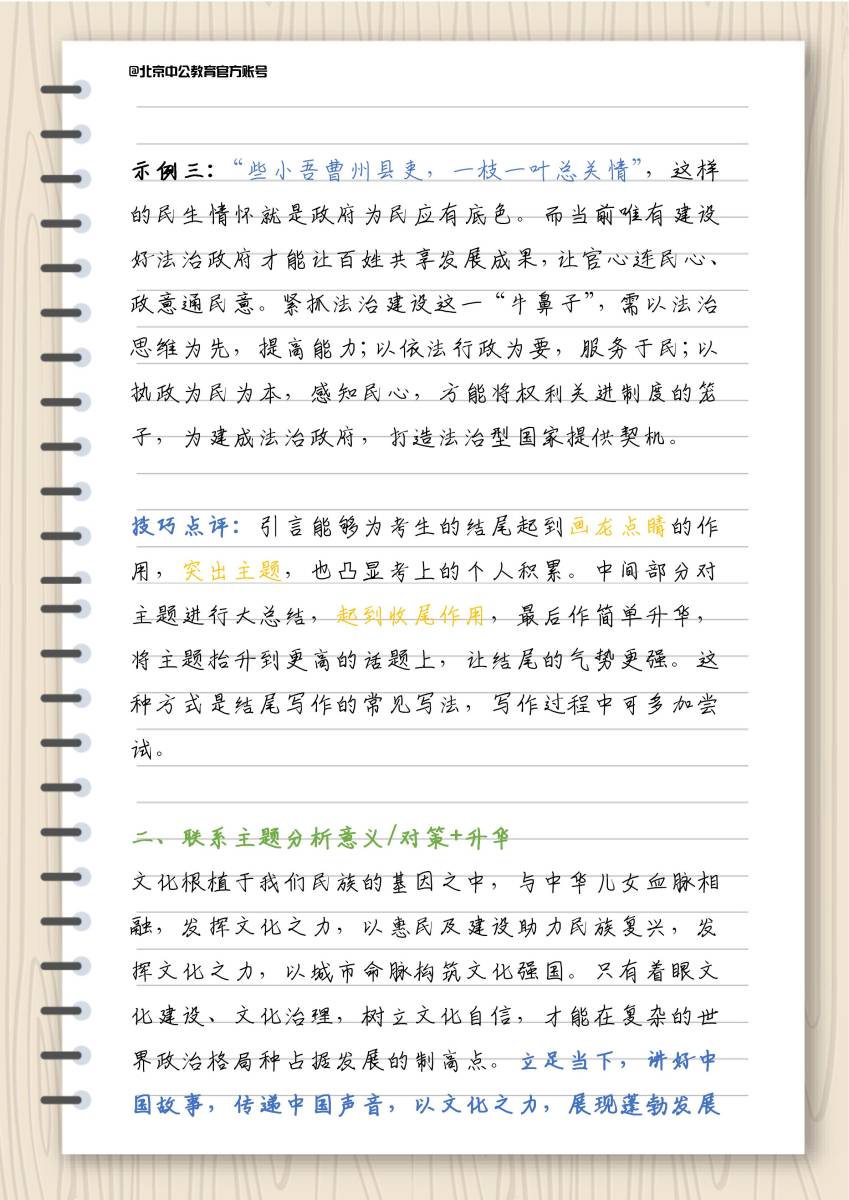 @北京中公教育官方账号
示例三：“些小吾曹州县吏，一枝一叶总关情”，这样
的民生情怀就是政府为民应有底色。而当前唯有建设
好法治政府才能让百姓共享发展成果，让官心连民心、
政意通民意。紧抓法治建设这一“牛鼻子”，需以法治
思维为先，提高能力；以依法行政为要，服务于民；以
执政为民为本，感知民心，方能将权利关进制度的笼
子，为建成法治政府，打造法治型国家提供契机。
技巧点评：引言能够为考生的结尾起到画龙点睛的作
用，突出主题，也凸显考上的个人积累。中间部分对
主题进行大总结，起到收尾作用，最后作简单升华，
将主题抬升到更高的话题上，让结尾的气势更强。这
种方式是结尾写作的常见写法，写作过程中可多加尝
试。
二、联系主题分析意义/对策+升华
文化根植于我们民族的基因之中，与中华儿女血脉相
融，发挥文化之力，以惠民及建设助力民族复兴，发
挥文化之力，以城市命脉构筑文化强国。只有着眼文
化建设、文化治理，树立文化自信，才能在复杂的世
界政治格局种占据发展的制高点。立足当下，讲好中
国故事，传递中国声音，以文化之力，展现蓬勃发展